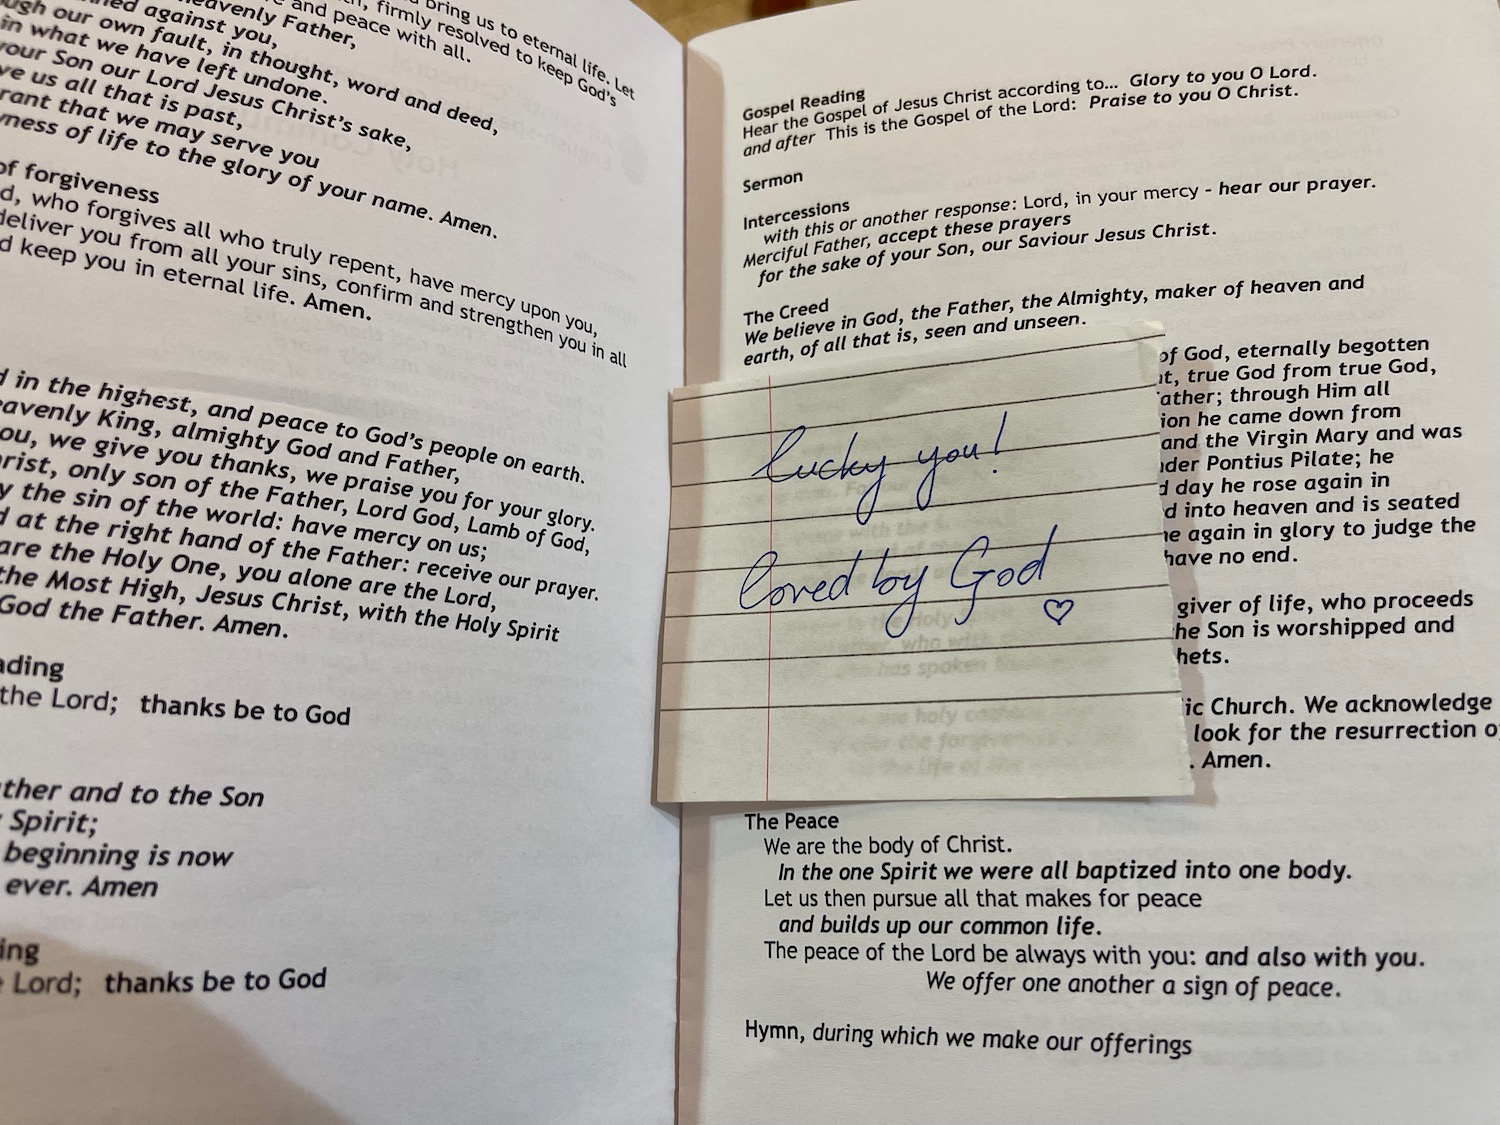 bring us to eternal life. Let
firmly resolved to keep God's
and peace with all.
heavenly Father,
against you,
our own fault, in thought, word and deed,
in what we have left undone.
your Son our Lord Jesus Christ's sake,
us all that is past,
that we may serve you
of life to the glory of your name. Amen.
of forgiveness
who forgives all who truly repent, have mercy upon you,
deliver you from all your sins, confirm and strengthen you in all
keep you in eternal life. Amen.
in the highest, and peace to God's people on earth.
King, almighty God and Father,
we give you thanks, we praise you for your glory.
only son of the Father, Lord God, Lamb of God,
the sin of the world: have mercy on us;
at the right hand of the Father: receive our prayer.
are the Holy One, you alone are the Lord,
the Most High, Jesus Christ, with the Holy Spirit
God the Father. Amen.
the Lord; thanks be to God
and to the Son
Spirit;
beginning is now
ever. Amen
Lord; thanks be to God
Gospel Reading
Hear the Gospel of Jesus Christ according to... Glory to you O Lord.
and after This is the Gospel of the Lord: Praise to you O Christ.
Sermon
Intercessions
with this or another response: Lord, in your mercy - hear our prayer.
Merciful Father, accept these prayers
for the sake of your Son, our Saviour Jesus Christ.
The Creed
We believe in God, the Father, the Almighty, maker of heaven and
earth, of all that is, seen and unseen.
of God, eternally begotten
true God from true God,
through Him all
he came down from
and the Virgin Mary and was
Pontius Pilate; he
day he rose again in
into heaven and is seated
again in glory to judge the
have no end.
giver of life, who proceeds
the Son is worshipped and
Church. We acknowledge
look for the resurrection of
. Amen.
lucky you!
loved by God
♡
The Peace
We are the body of Christ.
In the one Spirit we were all baptized into one body.
Let us then pursue all that makes for peace
and builds up our common life.
The peace of the Lord be always with you: and also with you.
We offer one another a sign of peace.
Hymn, during which we make our offerings